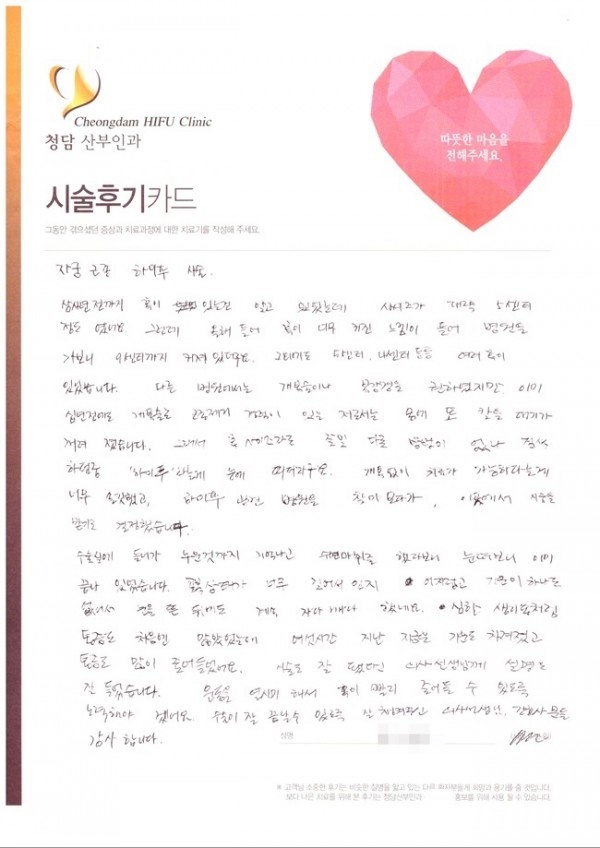 Cheongdam HIFU Clinic
청담 산부인과
따뜻한 마음을
전해주세요.
시술후기카드
그동안 겪으셨던 증상과 치료과정에 대한 치료기를 작성해 주세요.
자궁 근종 하이푸 시술.
삼년전까지 혹이 있는건 알고 있었는데 사이즈가 대략 5센터
정도 였네요. 그런데 올해 들어 혹이 너무 커진 느낌이 들어 병원을
가보니 9센터까지 커져 있더라구요. 그외에도 4센터 등등 여러 혹이
있었습니다. 다른 병원에서는 개복술이나 복강경을 권하였지만 이미
십년전에도 개복술로 근종제거 경험이 있는 저로서는 몸에 또 칼을 대기가
꺼려 졌습니다. 그래서 혹 사이즈라도 줄일 다른 방법이 없나 검색
하던중 '하이푸'라는게 눈에 띄더라구요. 개복없이 치료가 가능하다는게
너무 신기했고, 하이푸 관련 병원을 찾아보다가, 이곳에서 시술을
받기로 결정했습니다.
수술실에 들어가 누운것까지 기억나고 수면마취를 했다보니 눈떠보니 이미
끝나 있었습니다. 어지럽고 기운이 하나도
없어서 눈을 뜬 뒤에도 계속 자다 깨다 했네요. 심한 생리통처럼
통증도 처음엔 있었는데 여섯시간 지난 지금은 기운도 차려졌고
통증도 많이 줄어들었네요. 시술도 잘 됐다던 의사선생님께 설명도
잘 들었습니다. 운동을 열심히 해서 혹이 빨리 줄어들 수 있도록
노력해야 겠어요. 수술이 잘 끝날수 있도록 잘 해주신 의사선생님, 간호사분들
감사 합니다.
성명
※ 고객님 소중한 후기는 비슷한 질병을 앓고 있는 다른 환자분들께 희망과 용기를 줄 것입니다.
보다 나은 치료를 위해 본 후기는 청담산부인과 홍보를 위해 사용 될 수 있습니다.